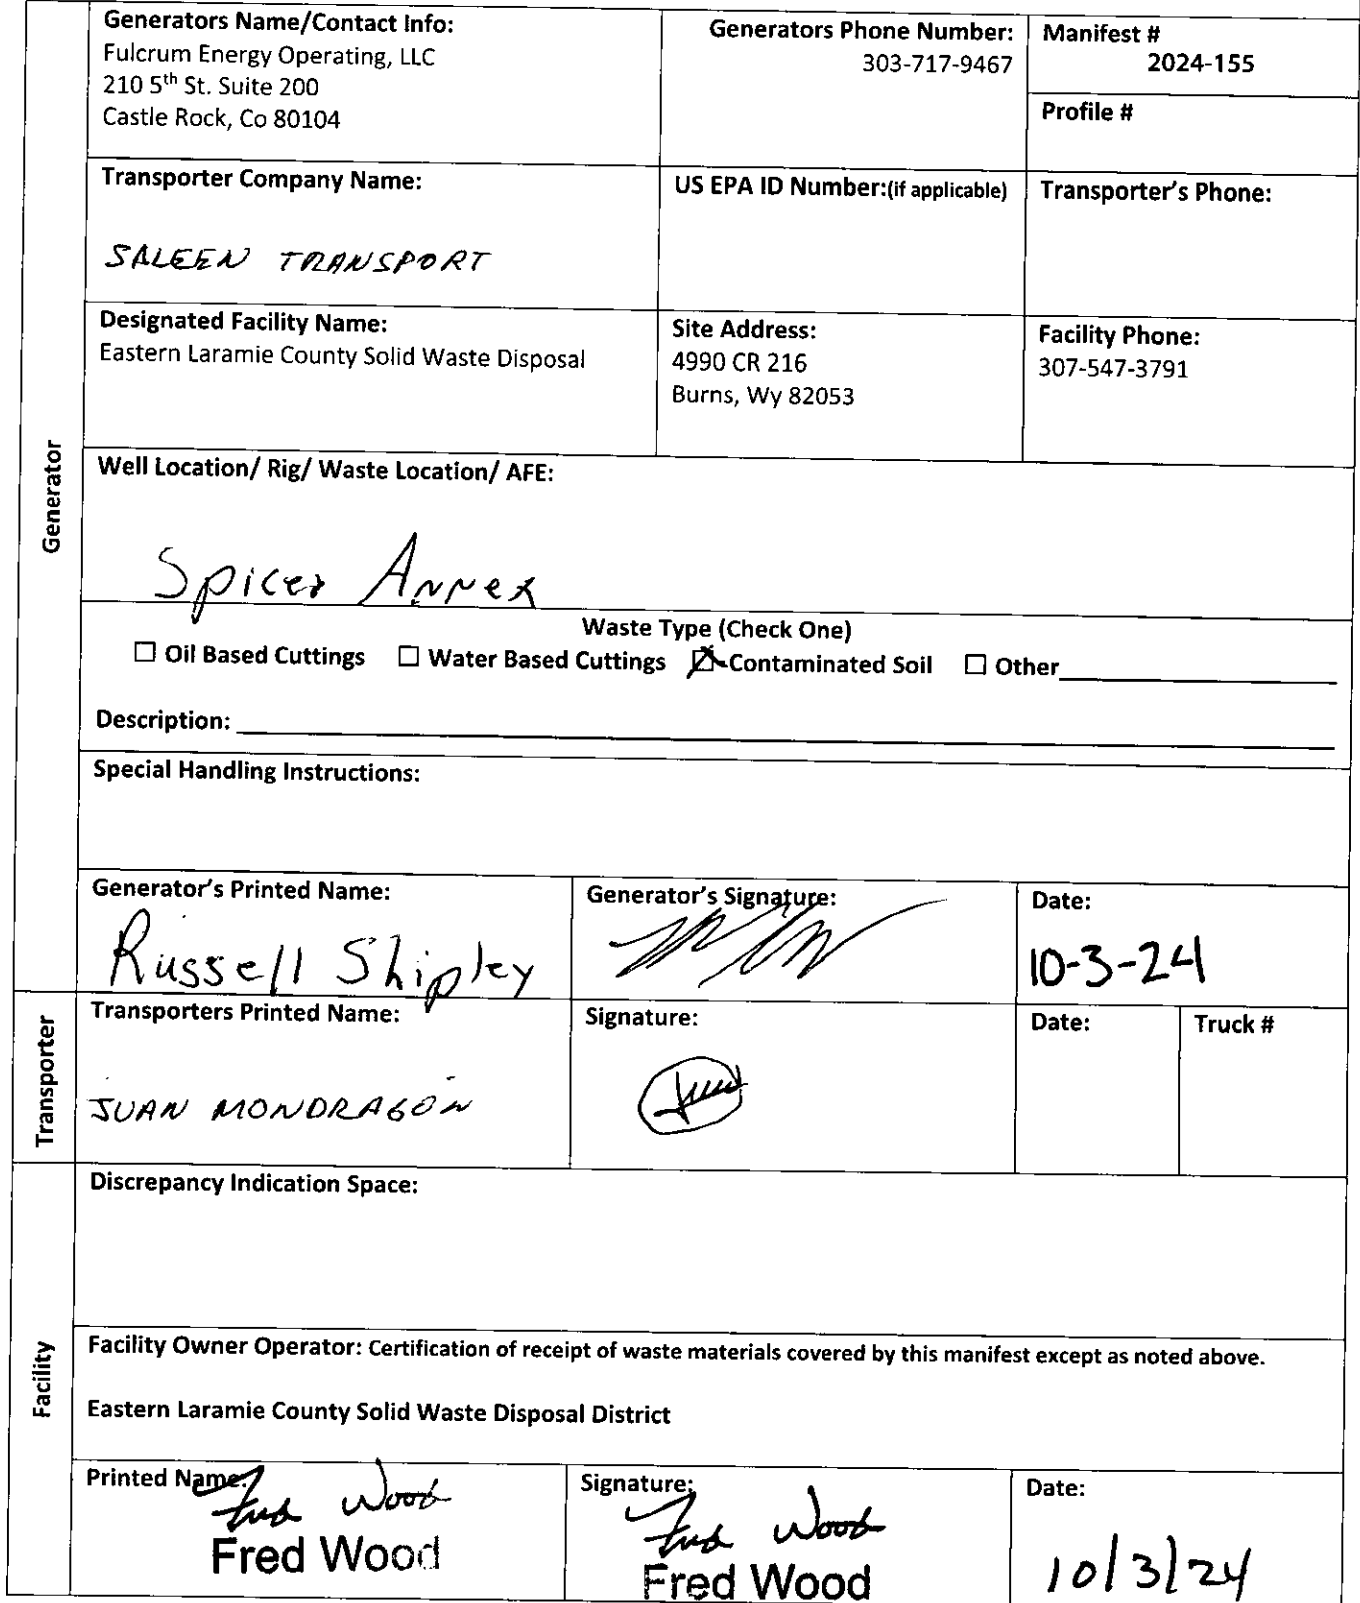 Generators Name/Contact Info:
Fulcrum Energy Operating, LLC
210 5th St. Suite 200
Castle Rock, Co 80104
Generators Phone Number:
303-717-9467
Manifest #
2024-155
Profile #
Transporter Company Name:
SALEEN TRANSPORT
US EPA ID Number:(if applicable)
Transporter's Phone:
Designated Facility Name:
Eastern Laramie County Solid Waste Disposal
Site Address:
4990 CR 216
Burns, Wy 82053
Facility Phone:
307-547-3791
Generator
Well Location/ Rig/ Waste Location/ AFE:
Spicer Annex
Waste Type (Check One)
☐ Oil Based Cuttings ☐ Water Based Cuttings ☒ Contaminated Soil ☐ Other
Description:
Special Handling Instructions:
Generator's Printed Name:
Russell Shipley
Generator's Signature:
Date:
10-3-24
Transporter
Transporters Printed Name:
JUAN MONDRAGON
Signature:
Date:
Truck #
Facility
Discrepancy Indication Space:
Facility Owner Operator: Certification of receipt of waste materials covered by this manifest except as noted above.
Eastern Laramie County Solid Waste Disposal District
Printed Name:
Fred Wood
Fred Wood
Signature:
Fred Wood
Fred Wood
Date:
10/3/24